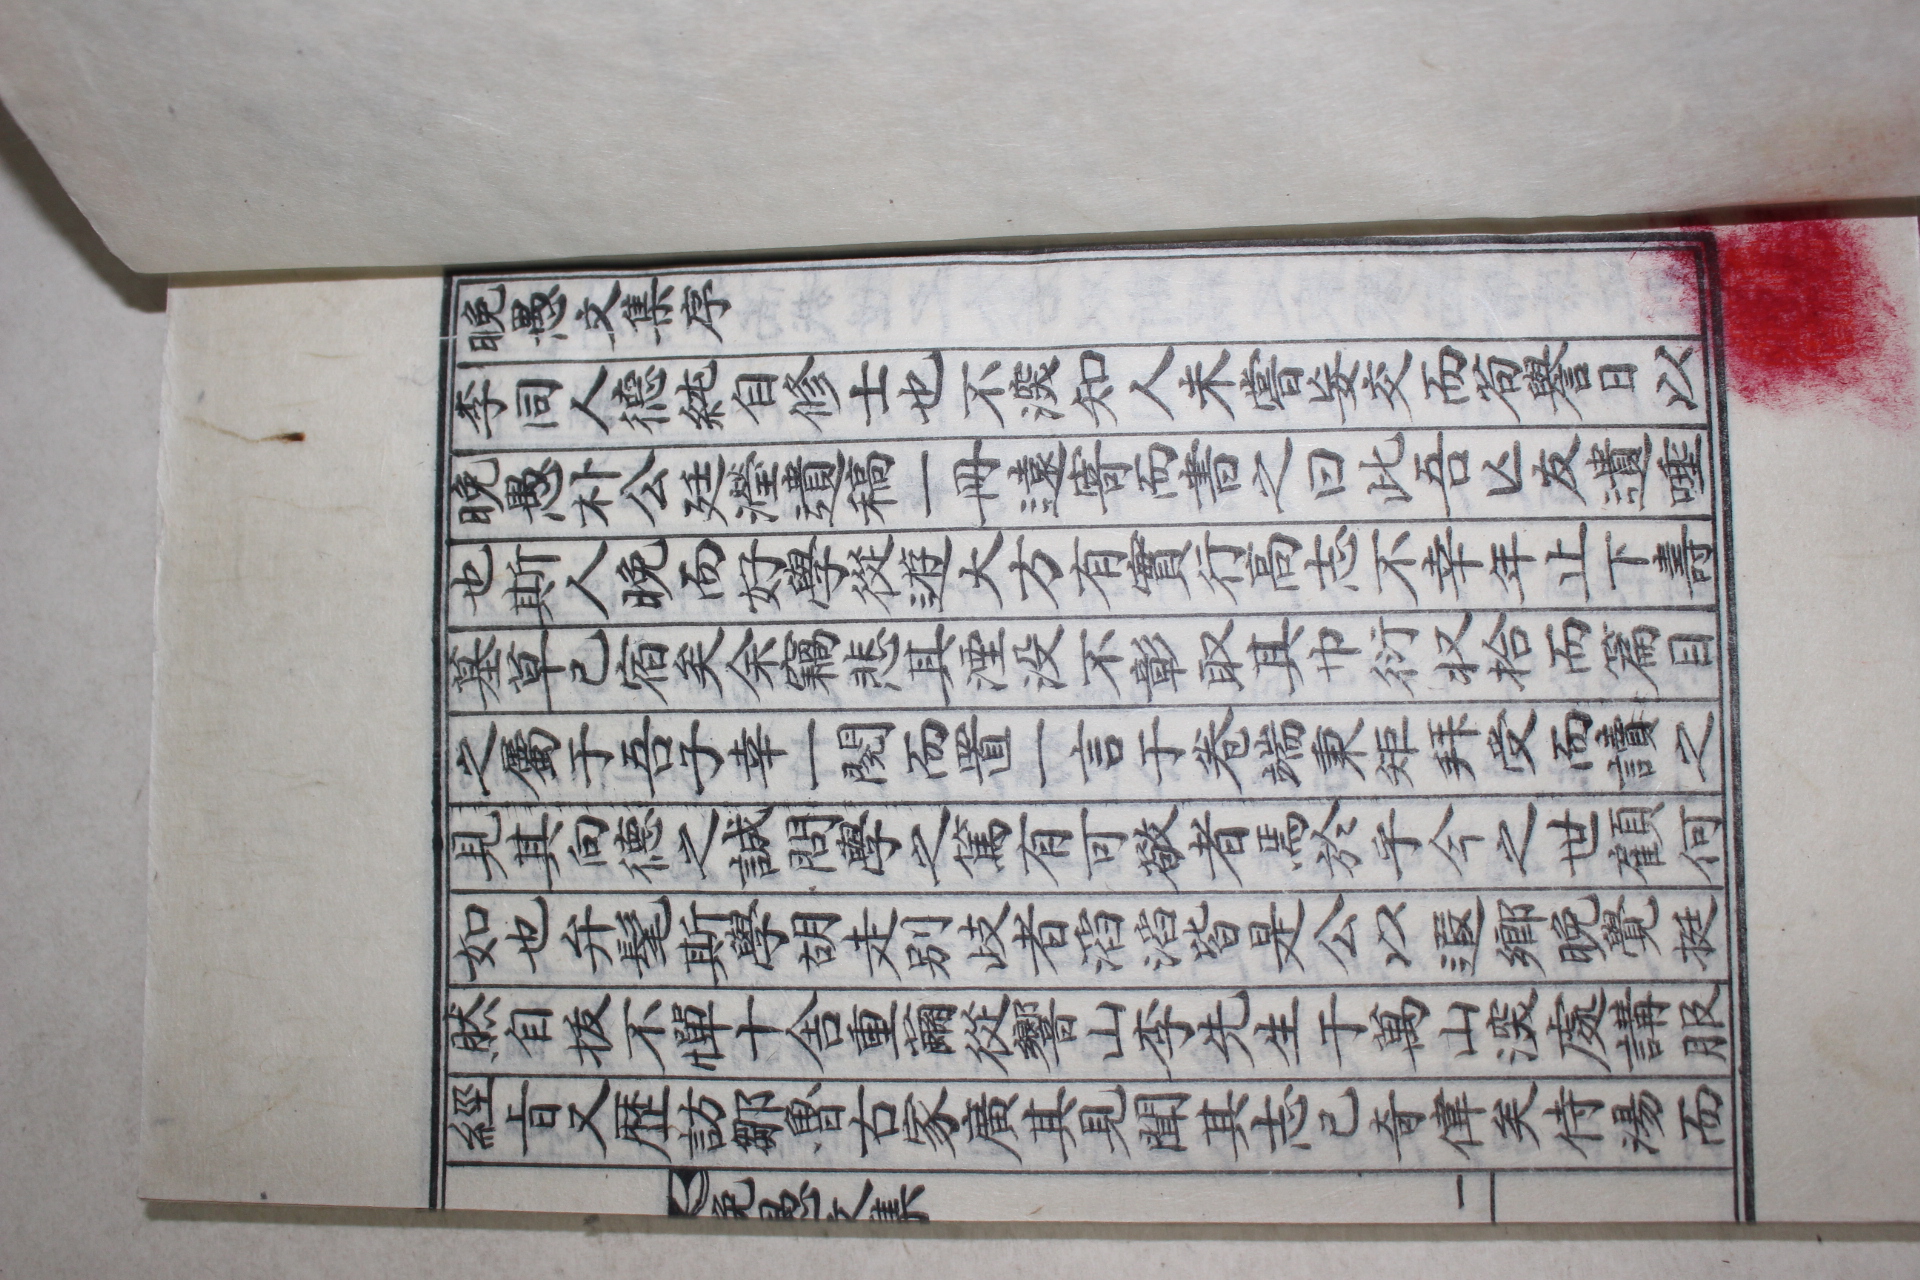 晚愚文集序
李同人德純自修士也不深知人未嘗妄交而苟譽日以
晚愚朴公廷瀅遺稿一冊遠寄而書之曰此吾亡友遺唾
也斯人晚而好學從遊大方有實行高志不幸年止下壽
墓草已宿矣余竊悲其湮没不彰取其巾衍収拾而篇目
之屬于吾子幸一閱而置一言于卷端秉矩拜受而讀之
見其向德之誠問學之篤有可敬者焉於乎今之世顧何
如也弁髦斯學胡走別歧者滔滔皆是公以遐鄉晚覺挺
然自拔不憚十舍重繭從響山李先生于萬山深處講服
經旨又歷訪鄒魯古家廣其見聞其志已奇偉矣侍湯而
晚愚文集 一